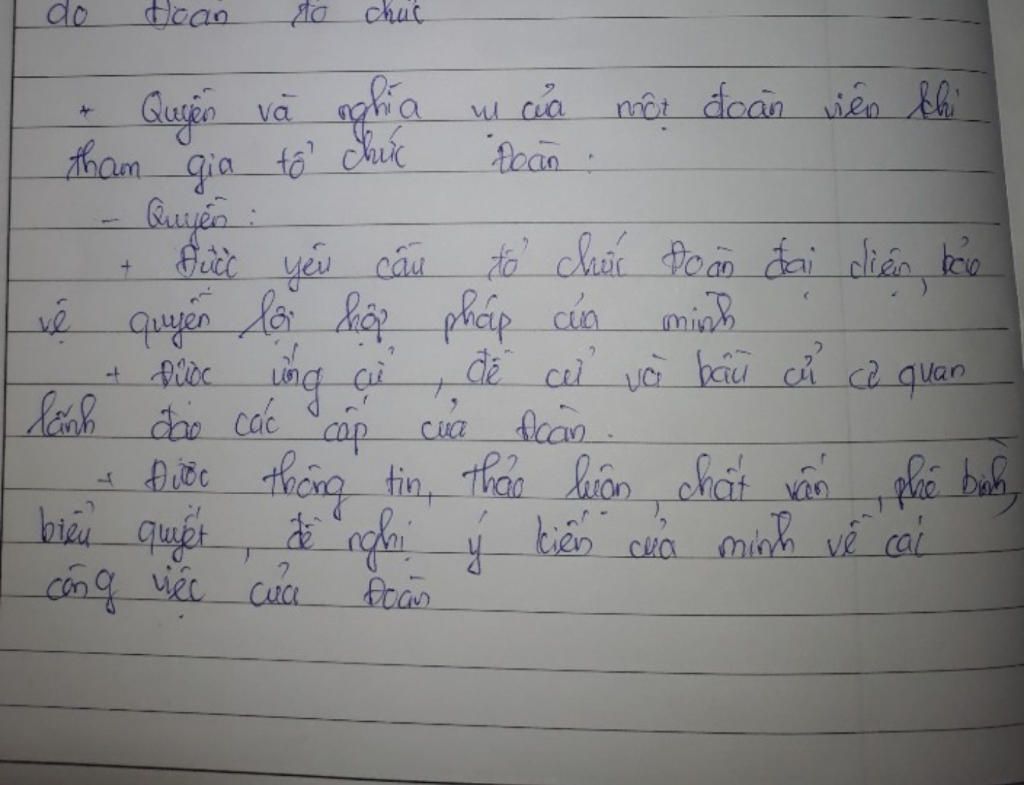 do Đoàn tổ chức
* Quyền và nghĩa vụ của một đoàn viên khi
tham gia tổ chức Đoàn :
- Quyền :
+ Được yêu cầu tổ chức Đoàn đại diện, bảo
vệ quyền lợi hợp pháp của mình
+ Được ứng cử, đề cử và bầu cử cơ quan
lãnh đạo các cấp của Đoàn.
+ Được thông tin, thảo luận, chất vấn, phê bình,
biểu quyết, đề nghị ý kiến của mình về các
công việc của Đoàn